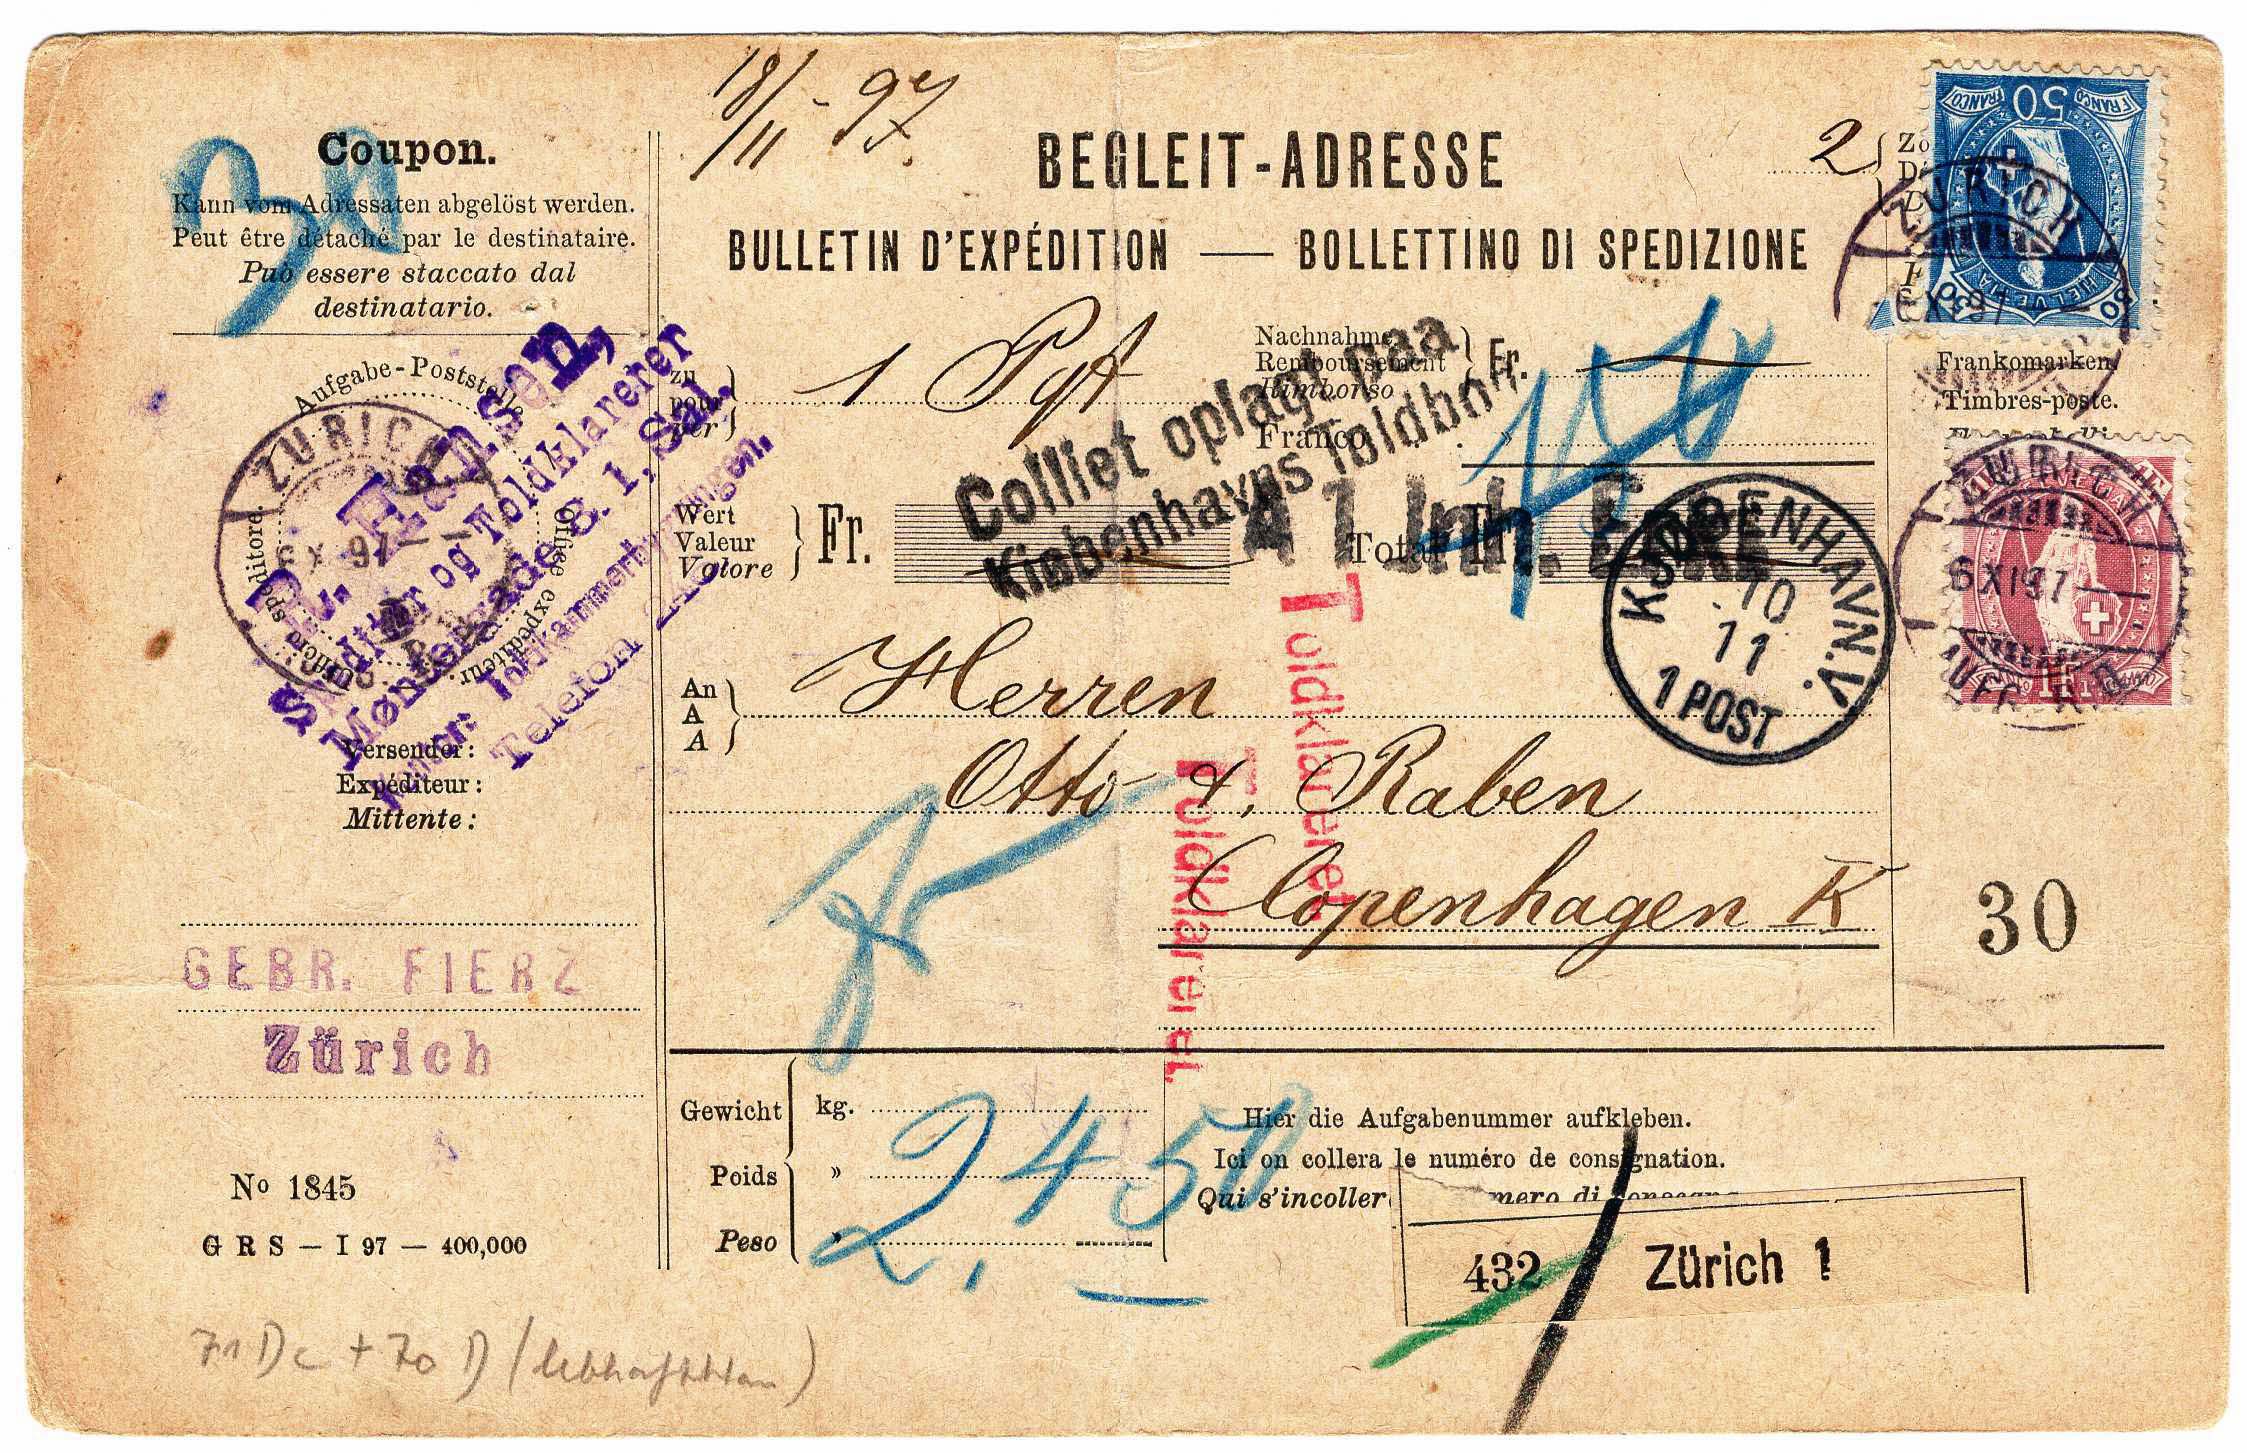 18/11 - 97
Coupon.
Kann vom Adressaten abgelöst werden.
Peut être détaché par le destinataire.
Può essere staccato dal
destinatario.
BEGLEIT-ADRESSE
BULLETIN D'EXPÉDITION — BOLLETTINO DI SPEDIZIONE
2
FRANCO 50 FRANCO
HELVETIA
ZÜRICH
Aufgabe-Poststelle
Office expéditeur.
Ufficio speditore.
ZÜRICH
6 XI 97
Hansen,
og Toldklarerer
8. 1. Sal.
Telefon
zu
pour
per
1
Nachnahme
Remboursement
Rimborso
Franco
Fr.
»
Colliet oplagt paa
Kjøbenhavns Toldbod.
Frankomarken.
Timbres-poste.
ZÜRICH
6 XI 97
Wert
Valeur
Valore
Fr.
Total
KJØBENHAVN.V.
10
11
1 POST
Toldklareret.
Toldklareret.
An
A
A
Herren
Otto & Raben
Copenhagen K
30
Versender:
Expéditeur:
Mittente:
GEBR. FIERZ
Zürich
Nº 1845
G R S — I 97 — 400,000
Gewicht kg.
Poids »
Peso »
2450
Hier die Aufgabenummer aufkleben.
Ici on collera le numéro de consignation.
Qui s'incoller
432 Zürich 1
71 Dc + 70 D (lebhaftblau)